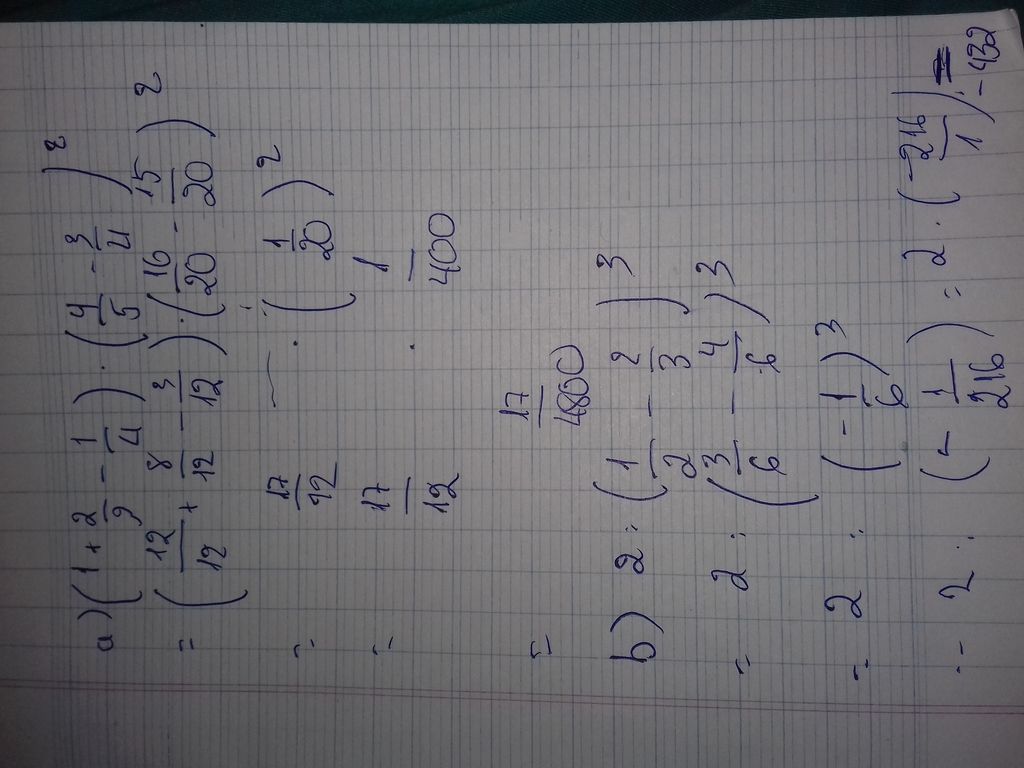 a) (1 + 2/9 - 1/4) · (4/5 - 3/4)²
= (12/12 + 8/12 - 3/12) · (16/20 - 15/20)²
= 17/12 · (1/20)²
= 17/12 · 1/400
= 17/4800
b) 2 : (1/2 - 2/3)³
= 2 : (3/6 - 4/6)³
= 2 : (-1/6)³
= 2 : (-1/216) = 2 · (-216/1) = -432